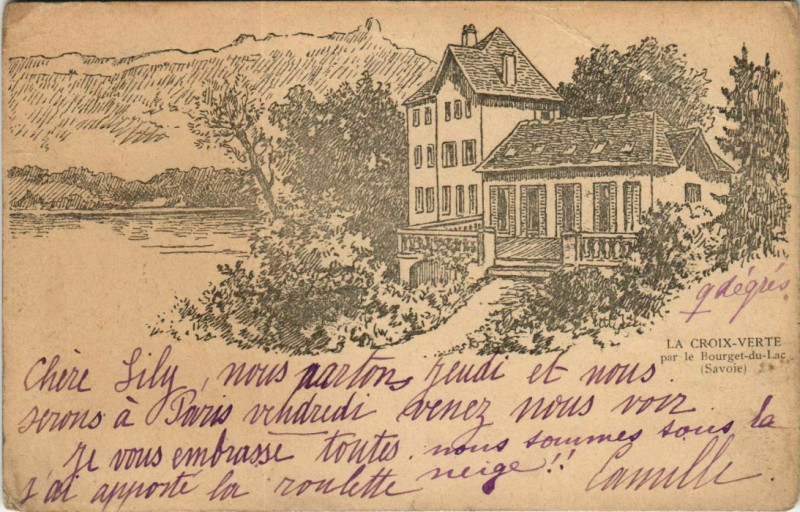 9 dégrés
LA CROIX-VERTE
par le Bourget-du-Lac
(Savoie)
Chère Lily, nous partons jeudi et nous
serons à Paris vendredi venez nous voir
je vous embrasse toutes. nous sommes sous la
neige!!
j'ai apporté la roulette
Camille.